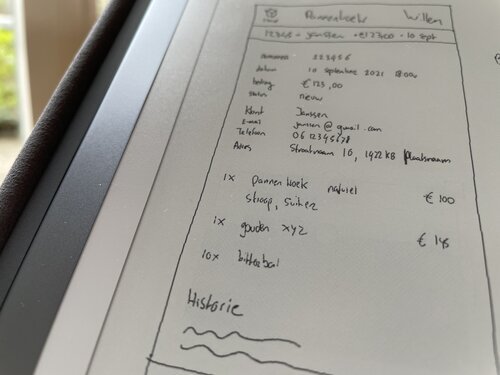 Pannenkoek Willem
12345 - Janssen - €123,00 - 10 sept
nummer 223456
datum 10 september 2021 18:00
bedrag €123,00
Status nieuw
Klant Janssen
E-mail janssen@gmail.com
Telefoon 0612345678
Adres Straatnaam 10, 1422KB Plaatsnaam
1x Pannenkoek naturel €100
stroop, suiker
1x gouden xyz €145
10x bitterbal
Historie